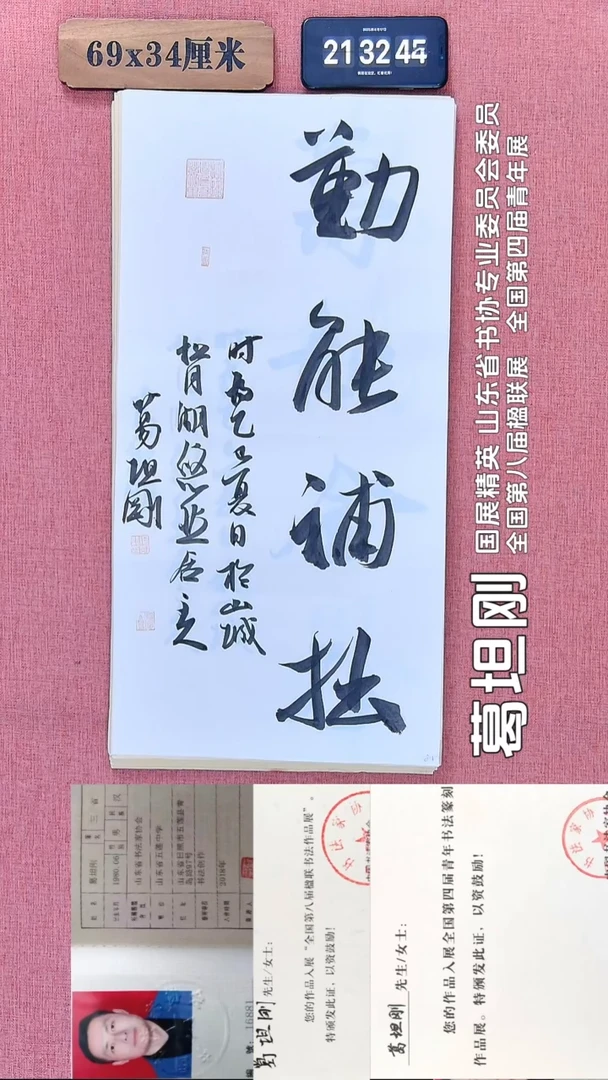 69x34厘米
21 32 44
勤能补拙
时爲乙巳夏日于山城
葛坦刚
葛坦刚
国展精英 山东省书协专业委员会委员
全国第八届楹联展 全国第四届青年展
葛坦刚
山东省书法家协会
山东省五莲中学
2018年
葛坦刚 先生/女士:
您的作品入展“全国第八届楹联书法作品展”。
特颁发此证,以资鼓励!
葛坦刚 先生/女士:
您的作品入展全国第四届青年书法篆刻
作品展。特颁发此证,以资鼓励!